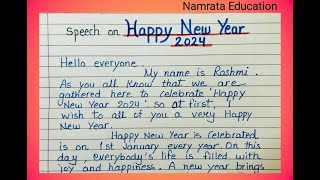 Namrata Education
Speech on Happy New Year
2024
Hello everyone
My name is Rashmi.
As you all know that we are
gathered here to celebrate 'Happy
New Year 2024' so at first, I
wish to all of you a very Happy
New Year.
Happy New Year is celebrated
is on 1st January every year. On this
day, everybody's life is filled with
joy and happiness. A new year brings